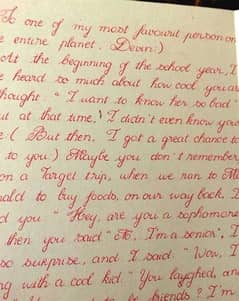 To one of my most favourit person on
e entire planet. Devin:)
At the beginning of the school year, I
e heard so much about how cool you are
thought. "I want to know her so bad"
ut at that time, I didn't even know your
e:( But then, I got a great chance to
to you:) Maybe you don't remember
on a Target trip, when we ran to Mc
nald to buy foods, on our way back, I
d you. "Hey, are you a sophomore
then you said "No, I'm a senior", I
so surprise, and I said. "Wow, I
ng with a cool kid." You laughed, an
to be friends? I'm